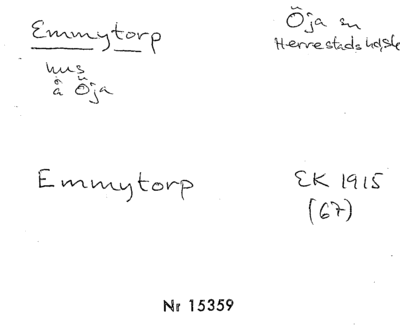 Emmytorp
Öja sn
Herrestads hd, Sk
hus
å Öja
Emmytorp
EK 1915
(67)
Nr 15359